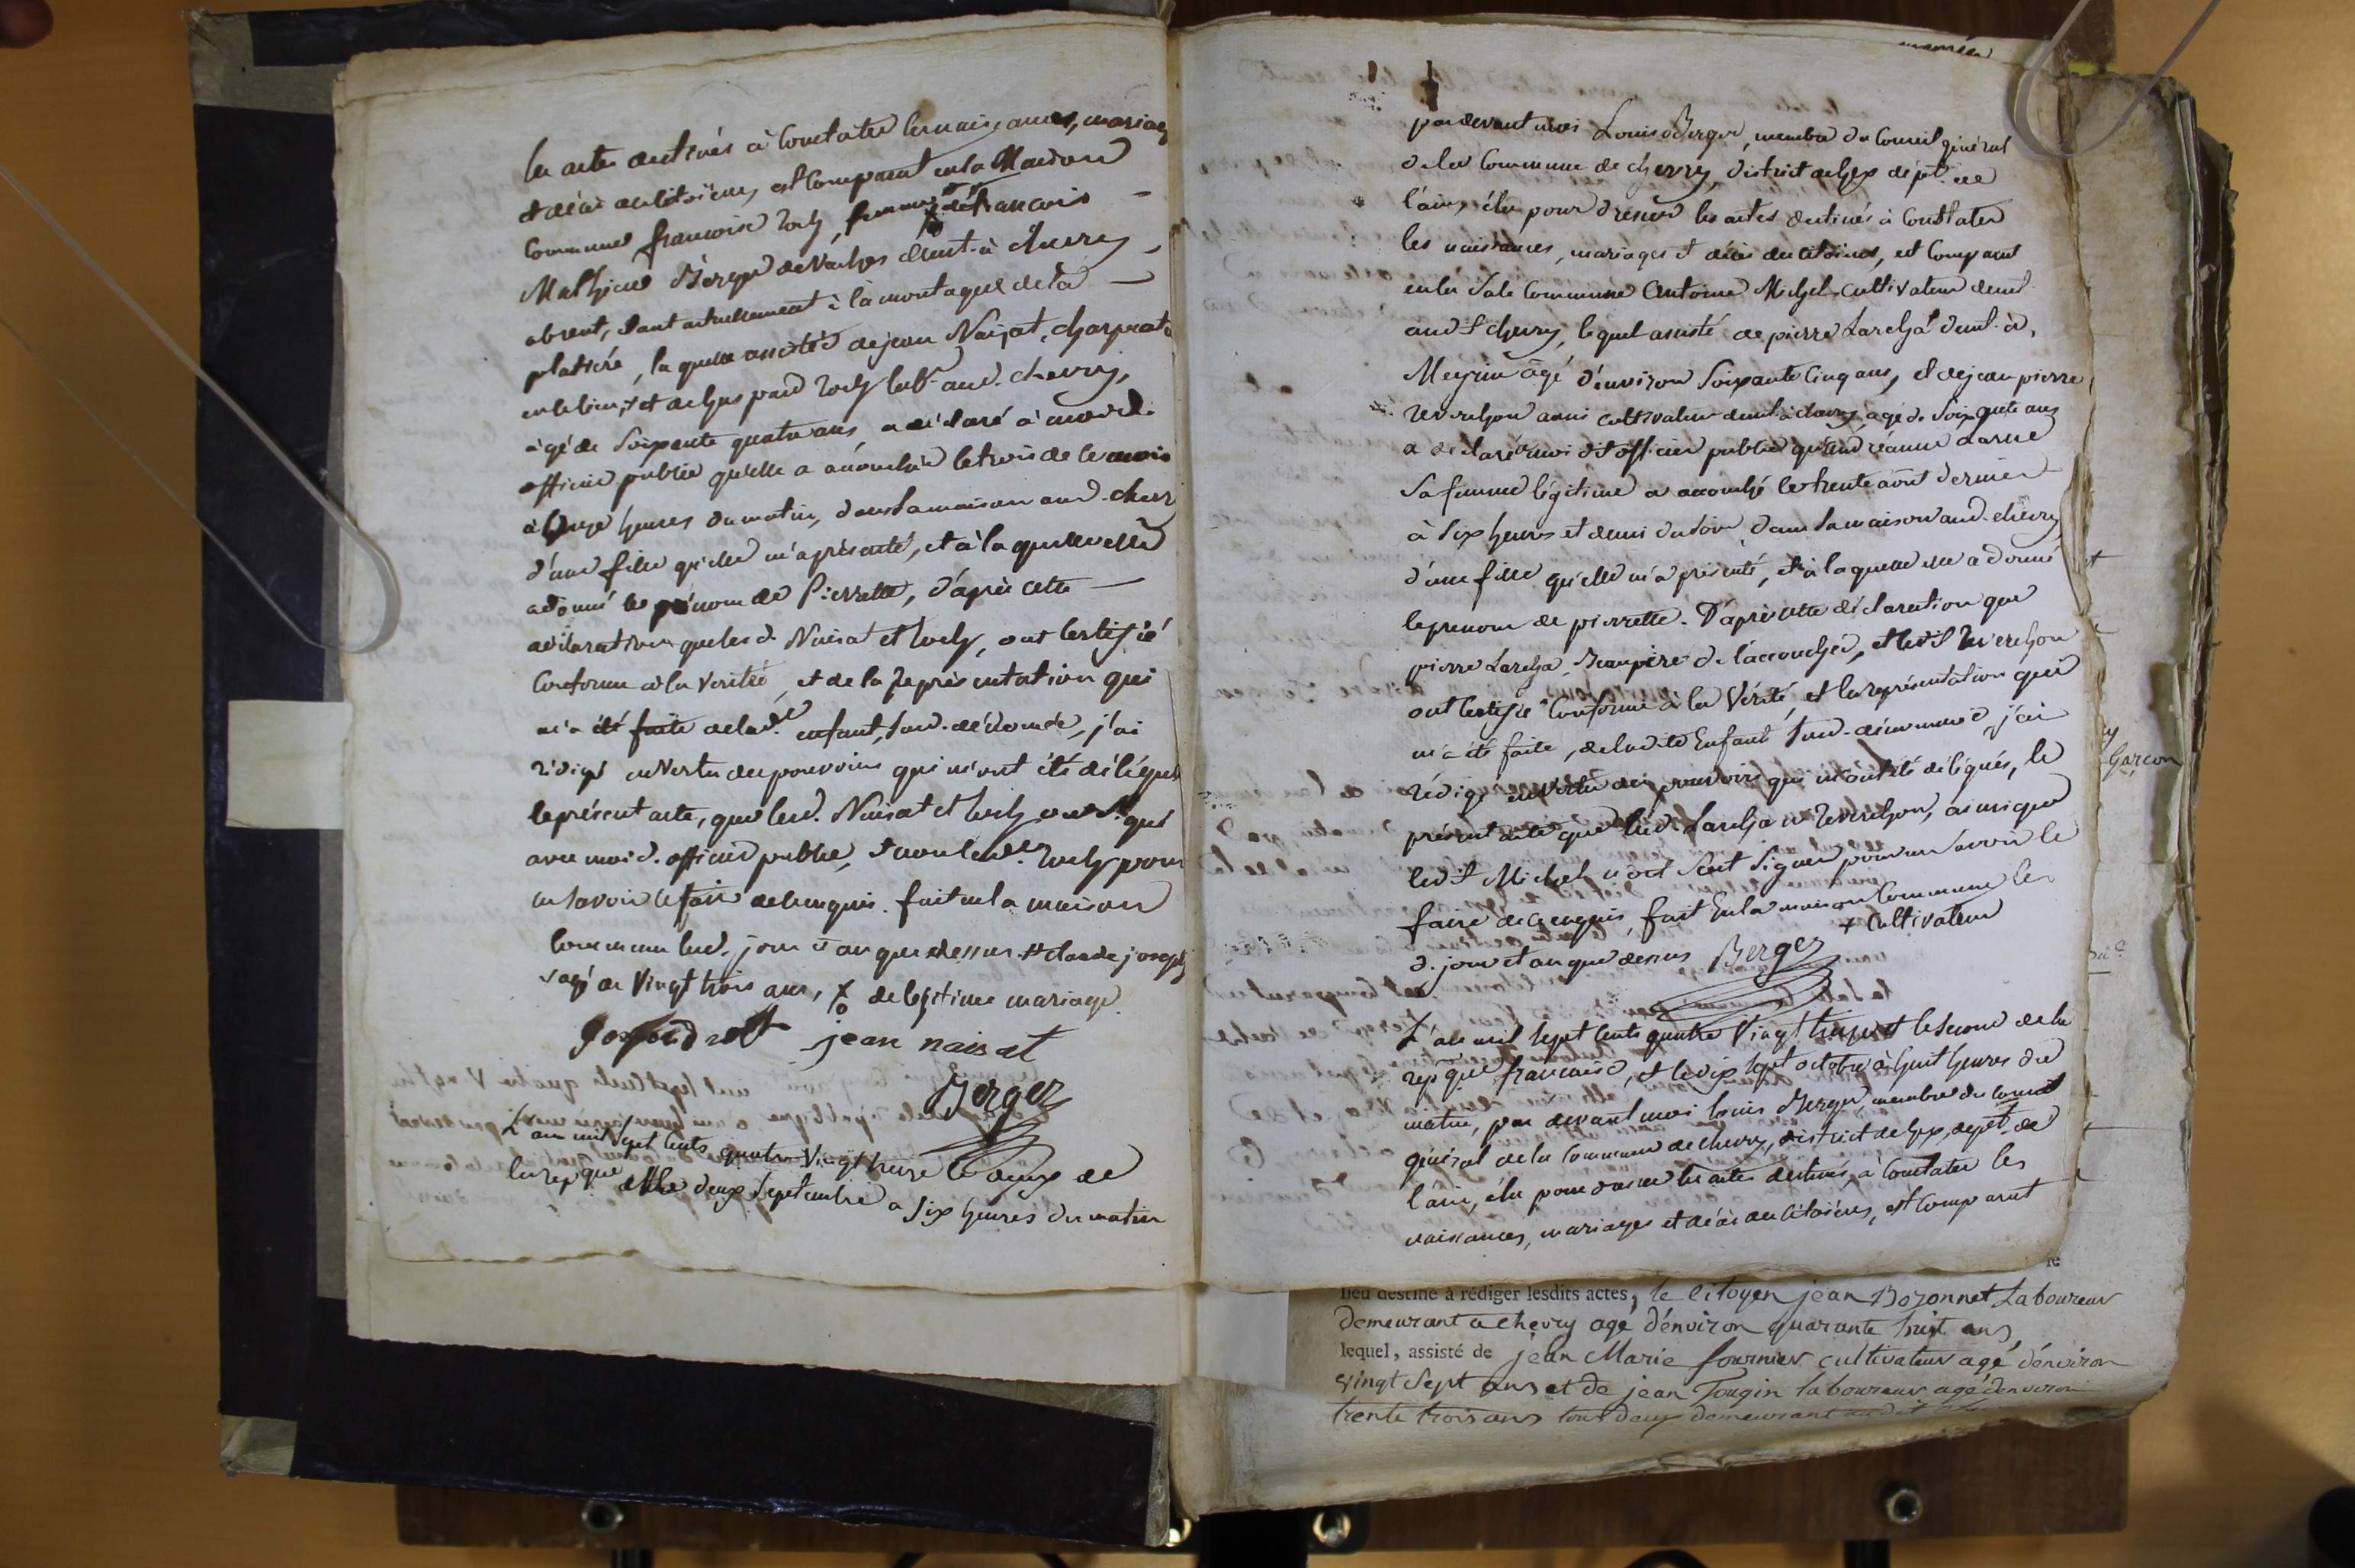 les actes destinés à constater les naissances, mariag
et décès des citoiens, est comparut en la Maison
commune francoise Roch, femme de francois
Mathieu Berger de Naches demt. à chevry
absent, étant actuellement à la montagne de la
platiere, la quelle assistée de jean Naizat, charpente
et de Roch labr. aud. chevry,
agé de soixante quatre ans, a déclaré à moi d.
officier public qu'elle a accouchée le trois de ce mois
à onze heures du matin, dans sa maison aud. chevr
d'une fille qu'elle m'a présenté, et à la quelle elle
a donné le prénom de Pierrette, d'après cette
déclaration que lesd. Naisat et Roch, ont certifié
conforme à la vérité, et de la représentation qui
m'a été faite de lade. enfant, sud. dénomée, j'ai
rédigé en vertu des pouvoirs qui m'ont été délégués
le présent acte, que lesd. Naisat et Roch ont sigé
avec moi d. officier public, et non lade. Roch pour
ne savoir le faire de ce enquis. fait en la maison
commune lesd. jour et an que dessus # claude joseph
agé de vingt trois ans, de légitime mariage
jean naisat
Berger
L'an mil sept cents quatre vingt treize le deux de
la repque et le deux septembre a six heures du matin
pardevant moi Louis Berger, membre du Conseil général
de la Commune de chevry, district de Gex dépt. de
l'ain, élu pour dresser les actes destinés à constater
les naissances, mariages et décès des citoiens, est comparut
en la sale commune Antoine Michel cultivateur demt.
aud.t chevry, lequel assisté de pierre Larcha demt. à
Meyrin agé d'environ soixante cinq ans, et de jean pierre
Reverchon aussi cultivateur demt. à chevry agé de soixante ans
a déclaré à moi dit officier public que jeanne Larcha
sa femme légitime a accouché le trente aout dernier
à six heures et demi du soir, dans sa maison aud. chevry
d'une fille qu'elle m'a présenté, et à laquelle elle a donné
le prenom de pierrette. D'après cette déclaration que
pierre Larcha, Beaupère de l'accouchée, et ledit Reverchon
ont certifié conforme à la vérité, et la représentation qui
m'a été faite, de ladite enfant sud. dénommée, j'ai
rédigé en vertu des pouvoirs qui m'ont été délégués, le
présent acte que lesd. Larcha et Reverchon, ainsi que
led.t Michel n'ont signer pour ne savoir le
faire de ce enquis, fait en la maison commune les
+ cultivateur
d. jour et an que dessus Berger
L'an mil sept cents quatre vingt treize et le second de la
repque francaise, et le dix sept octobre à huit heures du
matin, par devant moi louis Berger membre du conseil
général de la commune de chevry, district de Gex, dept. de
l'ain, élu pour dresser les actes destinés à constater les
naissances, mariages et décès des citoiens, est comparut
garcon
lieu destiné à rédiger lesdits actes, le citoyen jean Bozonnet Laboureur
demeurant a chevry agé d'environ quarante huit ans
lequel, assisté de jean Marie fournier cultivateur agé d'environ
vingt sept ans et de jean Tougin laboureur agé d'environ
trente trois ans tous deux demeurant audit